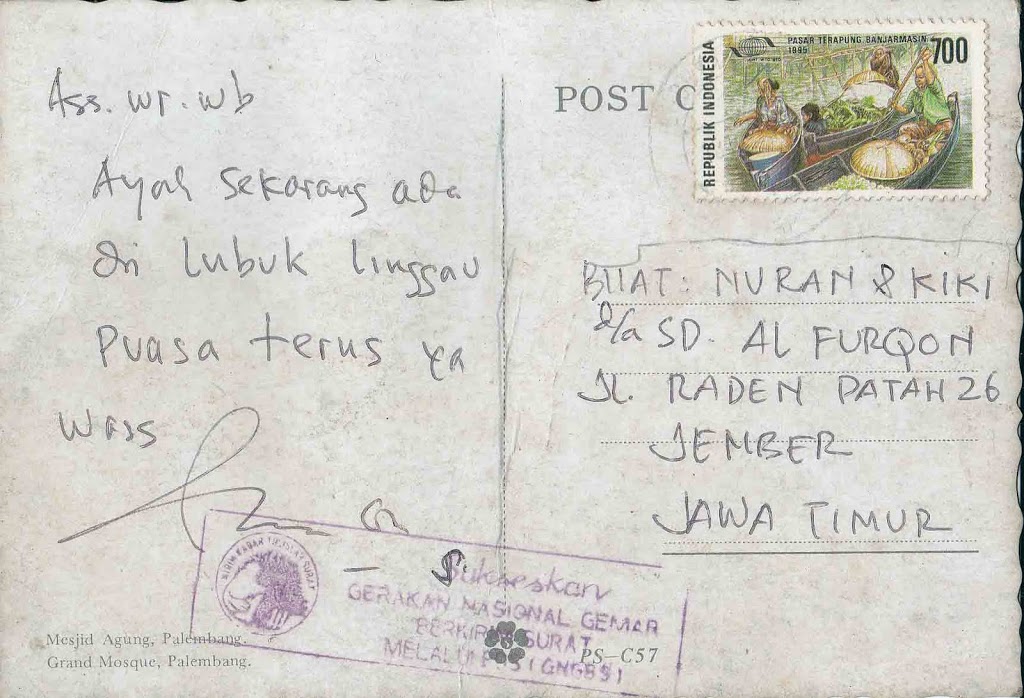 Ass. wr. wb
Ayah sekarang ada
di Lubuk linggau
Puasa terus ya
Wass
Mesjid Agung, Palembang.
Grand Mosque, Palembang.
POST C
REPUBLIK INDONESIA
PASAR TERAPUNG BANJARMASIN
1995
700
BUAT: NURAN & KIKI
d/a SD. AL FURQON
Jl. RADEN PATAH 26
JEMBER
JAWA TIMUR
Sukseskan
GERAKAN NASIONAL GEMAR
BERKIRIM SURAT
MELALUI POS (GNGBS)
PS-C57